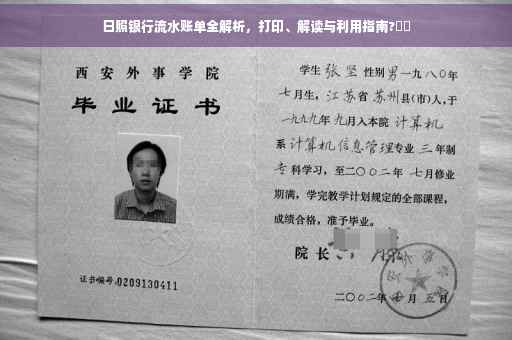 日照银行流水账单全解析，打印、解读与利用指南?
西安外事学院
毕业证书
证书编号:0209130411
学生 张坚 性别男一九八〇年
七月生，江苏省苏州县(市)人,于
一九九九年九月入本院 计算机
系计算机信息管理专业 三年制
专科学习，至二〇〇二年 七月修业
期满，学完教学计划规定的全部课程，
成绩合格，准予毕业。
院长
二〇〇二年 七月 五日